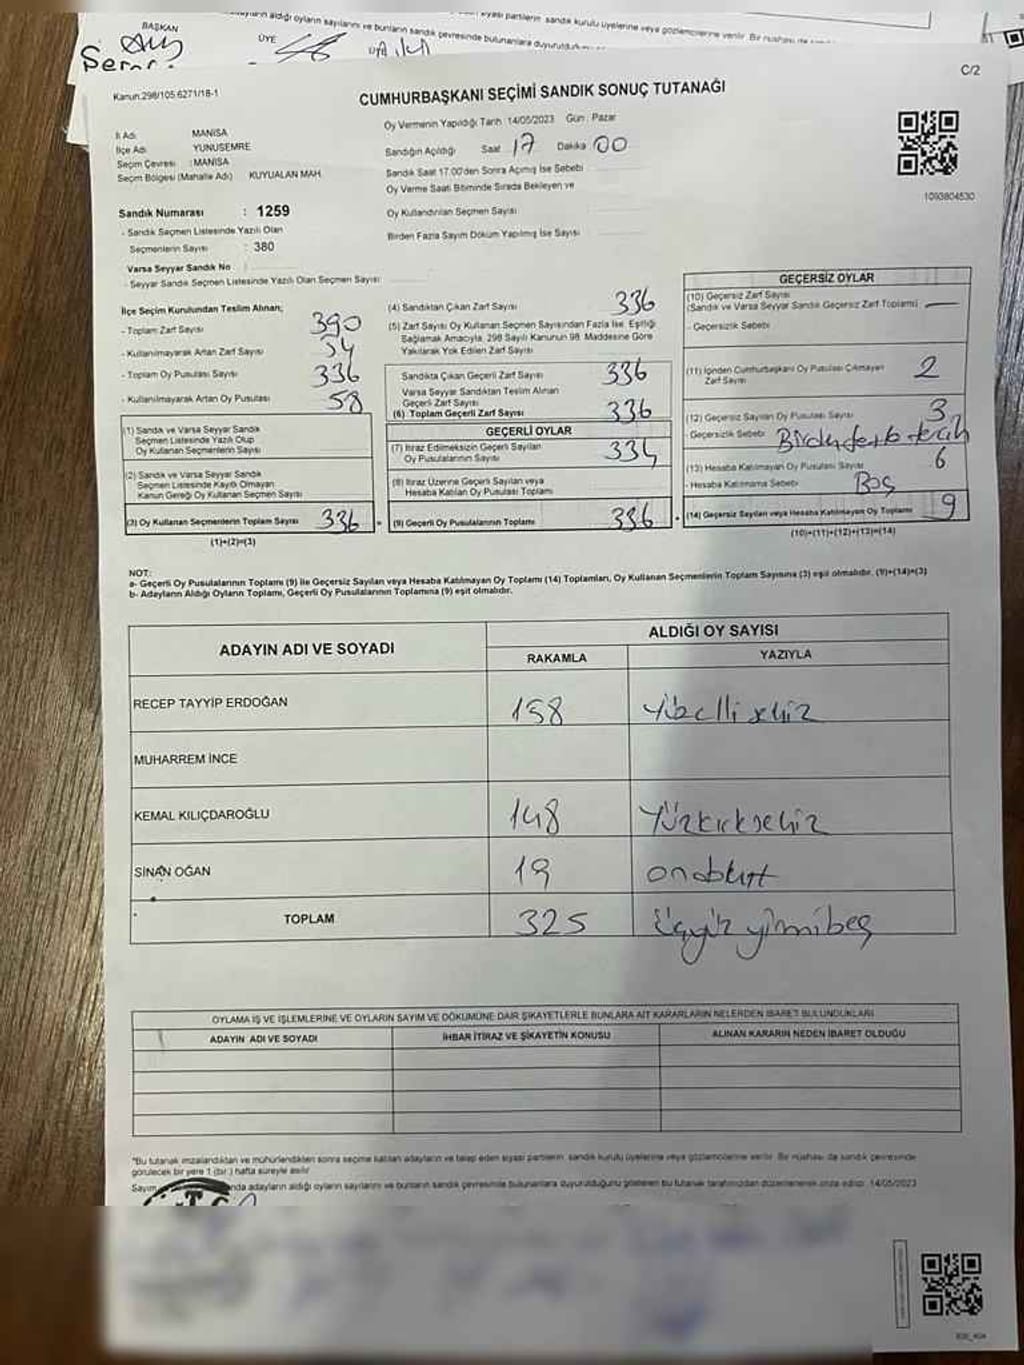 BAŞKAN
ÜYE
C/2
Kanun:298/105.6271/18-1
CUMHURBAŞKANI SEÇİMİ SANDIK SONUÇ TUTANAĞI
İl Adı MANİSA
İlçe Adı YUNUSEMRE
Seçim Çevresi : MANİSA
Seçim Bölgesi (Mahalle Adı) KUYUALAN MAH.
Oy Vermenin Yapıldığı Tarih 14/05/2023 Gün : Pazar
Sandığın Açıldığı Saat 17 Dakika 00
Sandık Saat 17:00'den Sonra Açılmış İse Sebebi
Oy Verme Saati Bitiminde Sırada Bekleyen ve
Oy Kullandırılan Seçmen Sayısı
Birden Fazla Sayım Döküm Yapılmış İse Sayısı
1093804530
Sandık Numarası : 1259
- Sandık Seçmen Listesinde Yazılı Olan
Seçmenlerin Sayısı : 380
Varsa Seyyar Sandık No
- Seyyar Sandık Seçmen Listesinde Yazılı Olan Seçmen Sayısı
İlçe Seçim Kurulundan Teslim Alınan;
- Toplam Zarf Sayısı 390
- Kullanılmayarak Artan Zarf Sayısı 54
- Toplam Oy Pusulası Sayısı 336
- Kullanılmayarak Artan Oy Pusulası 58
(1) Sandık ve Varsa Seyyar Sandık
Seçmen Listesinde Yazılı Olup
Oy Kullanan Seçmenlerin Sayısı
(2) Sandık ve Varsa Seyyar Sandık
Seçmen Listesinde Kayıtlı Olmayan
Kanun Gereği Oy Kullanan Seçmen Sayısı
(3) Oy Kullanan Seçmenlerin Toplam Sayısı 336
(1)+(2)=(3)
(4) Sandıktan Çıkan Zarf Sayısı 336
(5) Zarf Sayısı Oy Kullanan Seçmen Sayısından Fazla İse, Eşitliği
Sağlamak Amacıyla, 298 Sayılı Kanunun 98. Maddesine Göre
Yakılarak Yok Edilen Zarf Sayısı
Sandıkta Çıkan Geçerli Zarf Sayısı 336
Varsa Seyyar Sandıktan Teslim Alınan
Geçerli Zarf Sayısı
(6) Toplam Geçerli Zarf Sayısı 336
GEÇERLİ OYLAR
(7) İtiraz Edilmeksizin Geçerli Sayılan
Oy Pusulalarının Sayısı 334
(8) İtiraz Üzerine Geçerli Sayılan veya
Hesaba Katılan Oy Pusulası Toplamı
(9) Geçerli Oy Pusulalarının Toplamı 336
GEÇERSİZ OYLAR
(10) Geçersiz Zarf Sayısı
(Sandık ve Varsa Seyyar Sandık Geçersiz Zarf Toplamı) —
- Geçersizlik Sebebi
(11) İçinden Cumhurbaşkanı Oy Pusulası Çıkmayan
Zarf Sayısı 2
(12) Geçersiz Sayılan Oy Pusulası Sayısı 3
- Geçersizlik Sebebi
(13) Hesaba Katılmayan Oy Pusulası Sayısı 6
- Hesaba Katılmama Sebebi Boş
(14) Geçersiz Sayılan veya Hesaba Katılmayan Oy Toplamı 9
(10)+(11)+(12)+(13)=(14)
NOT:
a- Geçerli Oy Pusulalarının Toplamı (9) ile Geçersiz Sayılan veya Hesaba Katılmayan Oy Toplamı (14) Toplamları, Oy Kullanan Seçmenlerin Toplam Sayısına (3) eşit olmalıdır. (9)+(14)=(3)
b- Adayların Aldığı Oyların Toplamı, Geçerli Oy Pusulalarının Toplamına (9) eşit olmalıdır.
ADAYIN ADI VE SOYADI
ALDIĞI OY SAYISI
RAKAMLA YAZIYLA
RECEP TAYYİP ERDOĞAN 158 Yüzelli sekiz
MUHARREM İNCE
KEMAL KILIÇDAROĞLU 148 Yüzkırksekiz
SİNAN OĞAN 19 ondokuz
TOPLAM 325 Üçyüz yirmibeş
OYLAMA İŞ VE İŞLEMLERİNE VE OYLARIN SAYIM VE DÖKÜMÜNE DAİR ŞİKAYETLERLE BUNLARA AİT KARARLARIN NELERDEN İBARET BULUNDUKLARI
ADAYIN ADI VE SOYADI İHBAR İTİRAZ VE ŞİKAYETİN KONUSU ALINAN KARARIN NEDEN İBARET OLDUĞU
*Bu tutanak imzalandıktan ve mühürlendikten sonra seçime katılan adayların ve talep eden siyasi partilerin sandık kurulu üyelerine veya gözlemcilerine verilir. Bir nüshası da sandık çevresinde
görülecek bir yere 1 (bir) hafta süreyle asılır
Sayım nda adayların aldığı oyların sayılarını ve bunların sandık çevresinde bulunanlara duyurulduğunu gösteren bu tutanak tarafımızdan düzenlenerek imza edildi. 14/05/2023